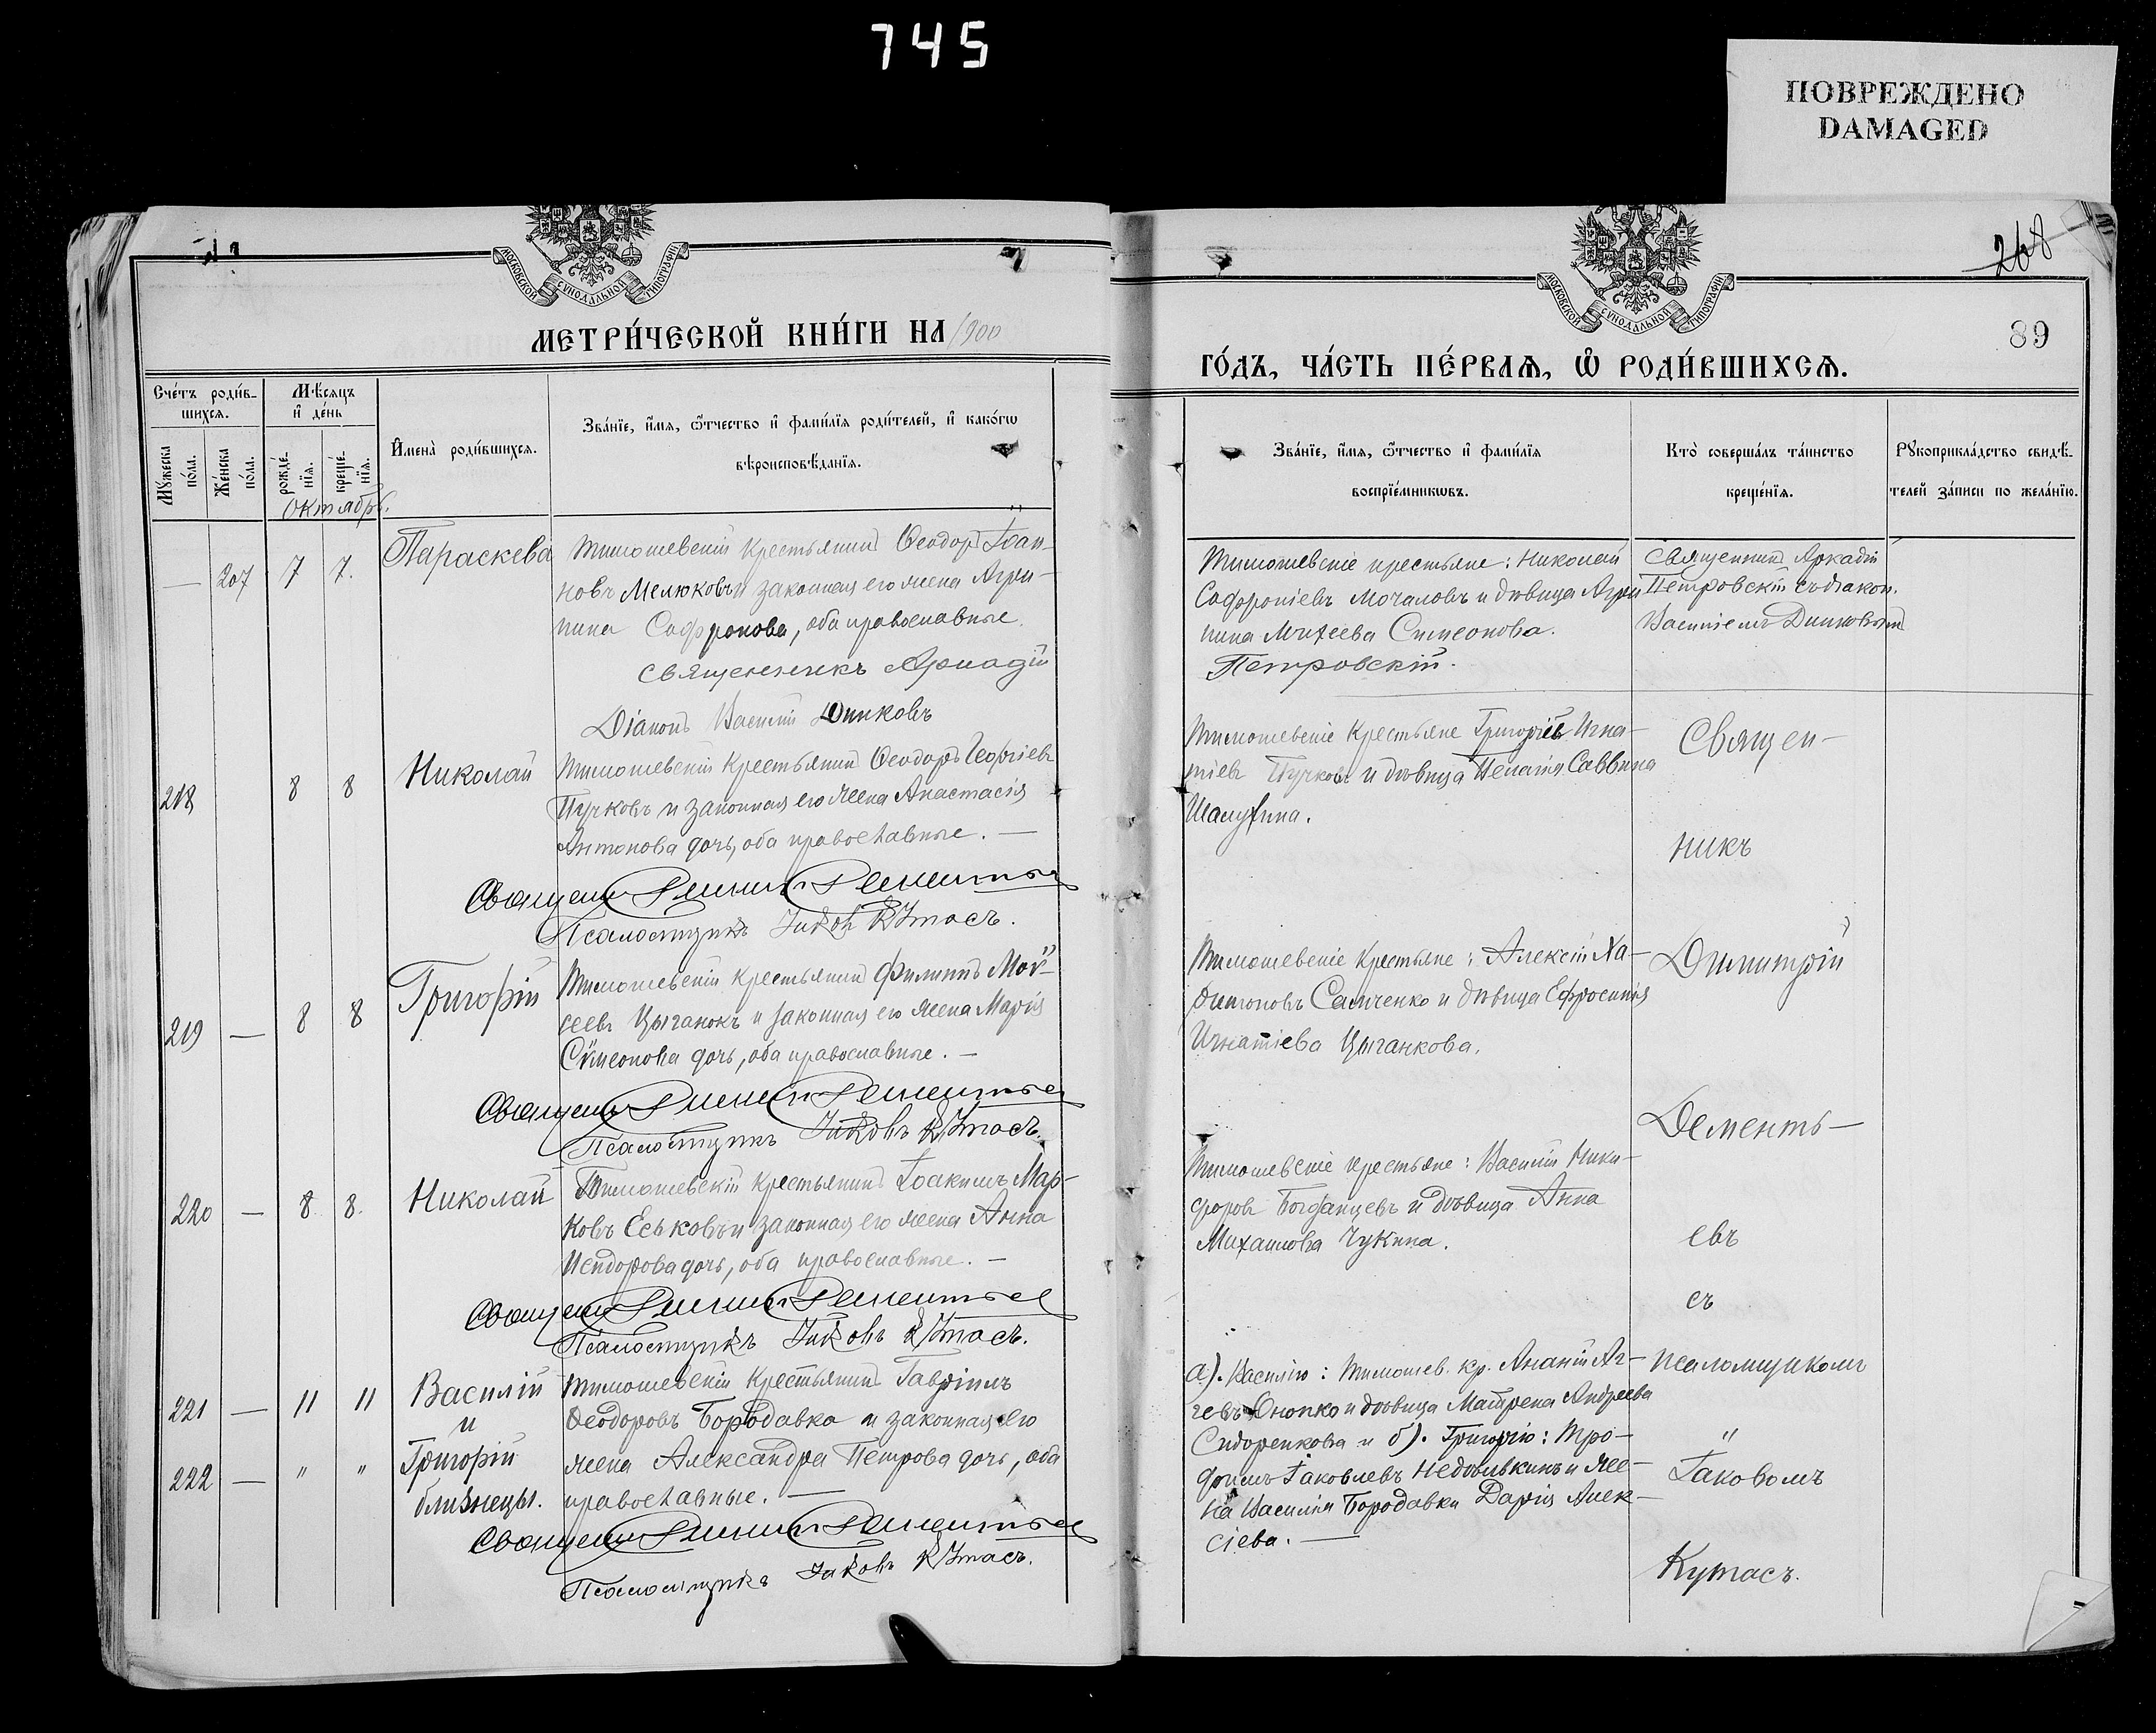 745
ПОВРЕЖДЕНО
DAMAGED
268
89
МОСКОВСКОЙ СѴНОДАЛЬНОЙ ТИПОГРАФІИ
МОСКОВСКОЙ СѴНОДАЛЬНОЙ ТИПОГРАФІИ
МЕТРИ́ЧЕСКОЙ КНИ́ГИ НА 1900
ГО́ДЪ, ЧА́СТЬ ПЕ́РВАѦ, Ѡ҆ РОДИ́ВШИХСѦ.
Сче́тъ роди́в-
шихсѧ.
Мꙋжеска по́ла.
Же́нска по́ла.
Мѣ́сѧцъ
и҆ де́нь
рожде́-нїѧ.
креще́-нїѧ.
И҆мена̀ роди́вшихсѧ.
Зва́нїе, и҆́мѧ, ѻ҆́тчество и҆ фами́лїѧ роди́телей, и҆ како́гѡ
вѣроисповѣ́данїѧ.
Зва́нїе, и҆́мѧ, ѻ҆́тчество и҆ фами́лїѧ
воспрїе́мникѡвъ.
Кто̀ соверша́лъ та́инство
креще́нїѧ.
Рꙋкоприкла́дство свидѣ́-
телей за́писи по жела́нїю.
Октябрь.
— 207 7 7. Параскева
Тимошевскій крестьянинъ Ѳеодоръ Іоан-
новъ Мелюковъ и законная его жена Агри-
пина Софронова, оба православные.
Священникъ Аркадій
Діаконъ Василій Динковъ
Тимошевскіе крестьяне: Николай
Софроніевъ Мочаловъ и дѣвица Агри
пина Михеева Симеонова.
Петровскій.
Священникъ Аркадій
Петровскій съ діакон.
Василіемъ Динковымъ
218 8 8 Николай
Тимошевскій крестьянинъ Ѳеодоръ Георгіевъ
Пучковъ и законная его жена Анастасія
Антонова дочь, оба православные. —
Священ Димитрій Дементьев
Псаломщикъ Іаковъ Кутасъ.
Тимошевскіе крестьяне Григорій Игна-
тіевъ Пучковъ и дѣвица Пелагія Саввина
219 — 8 8 Григорій
Тимошевскій крестьянинъ Филиппъ Мой-
сеевъ Цыганокъ и законная его жена Марія
Сѵмеонова дочь, оба православные. —
Священ Димитрій Дементьев
Псаломщикъ Іаковъ Кутасъ.
Тимошевскіе крестьяне: Алексій Ха-
ритоновъ Самченко и дѣвица Ефросинія
Игнатіева Цыганкова.
220 — 8 8. Николай
Тимошевскій крестьянинъ Іоакимъ Мар-
ковъ Еськовъ и законная его жена Анна
Исидорова дочь, оба православные. —
Священ Димитрій Дементьев
Псаломщикъ Іаковъ Кутасъ.
Тимошевскіе крестьяне: Василій Ники-
форовъ Богданцевъ и дѣвица Анна
Михаилова Чукина.
221 — 11 11 Василій
и
222 — " " Григорій
близнецы.
Тимошевскій крестьянинъ Гавріилъ
Ѳеодоровъ Бородавка и законная его
жена Александра Петрова дочь, оба
православные. —
Священ Димитрій Дементьев
Псаломщикъ Іаковъ Кутасъ.
а). Василію: Тимошев. кр. Ананій Аг-
геевъ Онопко и дѣвица Матрена Андреева
Сидоренкова и б). Григорію: Тро-
фимъ Іаковлевъ Недовывкинъ и же-
на Василія Бородавки Дарія Алек-
сіева. —
Священ-
никъ
Димитрій
Дементь-
евъ
съ
псаломщикомъ
"
Іаковомъ
Кутасъ.